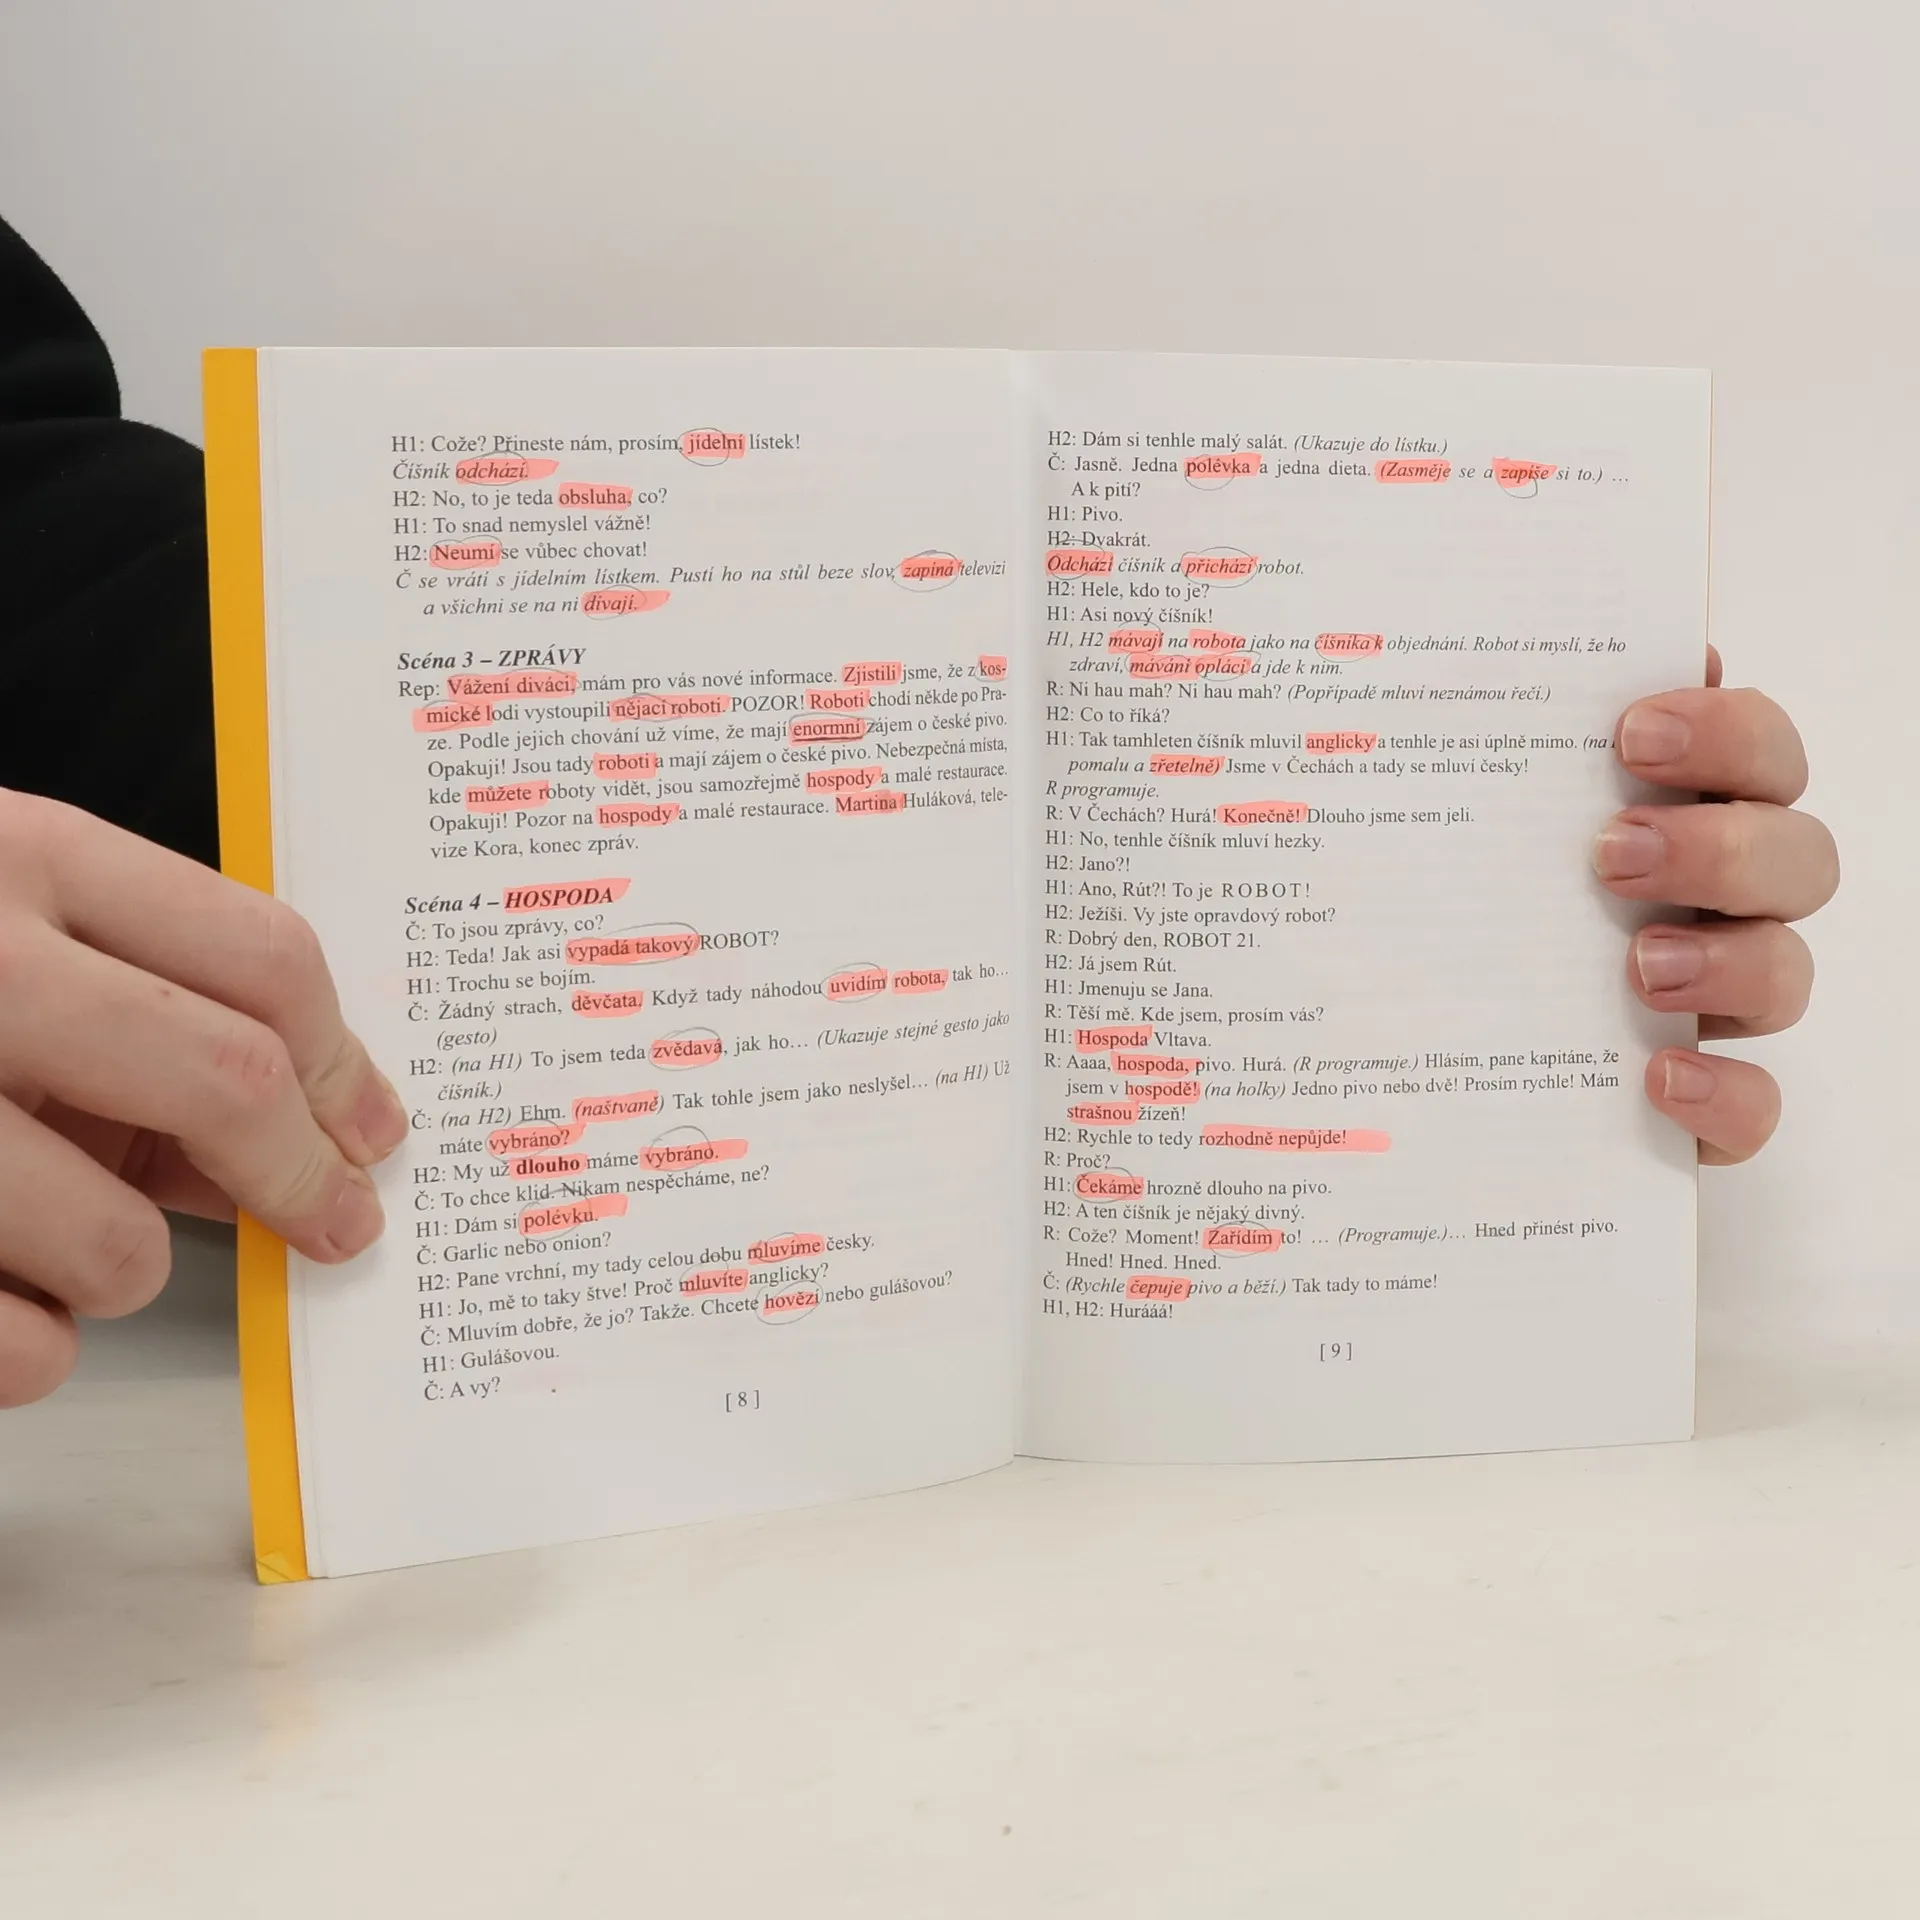 H1: Cože? Přineste nám, prosím, jídelní lístek!
Číšník odchází.
H2: No, to je teda obsluha, co?
H1: To snad nemyslel vážně!
H2: Neumí se vůbec chovat!
Č se vrátí s jídelním lístkem. Pustí ho na stůl beze slov, zapíná televizi
a všichni se na ni dívají.
Scéna 3 – ZPRÁVY
Rep: Vážení diváci, mám pro vás nové informace. Zjistili jsme, že z kos-
mické lodi vystoupili nějací roboti. POZOR! Roboti chodí někde po Pra-
ze. Podle jejich chování už víme, že mají enormní zájem o české pivo.
Opakuji! Jsou tady roboti a mají zájem o české pivo. Nebezpečná místa,
kde můžete roboty vidět, jsou samozřejmě hospody a malé restaurace.
Opakuji! Pozor na hospody a malé restaurace. Martina Huláková, tele-
vize Kora, konec zpráv.
Scéna 4 – HOSPODA
Č: To jsou zprávy, co?
H2: Teda! Jak asi vypadá takový ROBOT?
H1: Trochu se bojím.
Č: Žádný strach, děvčata. Když tady náhodou uvidím robota, tak ho…
(gesto)
H2: (na H1) To jsem teda zvědavá, jak ho… (Ukazuje stejné gesto jako
číšník.)
Č: (na H2) Ehm. (naštvaně) Tak tohle jsem jako neslyšel… (na H1) Už
máte vybráno?
H2: My už dlouho máme vybráno.
Č: To chce klid. Nikam nespěcháme, ne?
H1: Dám si polévku.
Č: Garlic nebo onion?
H2: Pane vrchní, my tady celou dobu mluvíme česky.
H1: Jo, mě to taky štve! Proč mluvíte anglicky?
Č: Mluvím dobře, že jo? Takže. Chcete hovězí nebo gulášovou?
H1: Gulášovou.
Č: A vy?
[ 8 ]
H2: Dám si tenhle malý salát. (Ukazuje do lístku.)
Č: Jasně. Jedna polévka a jedna dieta. (Zasměje se a zapíše si to.) …
A k pití?
H1: Pivo.
H2: Dvakrát.
Odchází číšník a přichází robot.
H2: Hele, kdo to je?
H1: Asi nový číšník!
H1, H2 mávají na robota jako na číšníka k objednání. Robot si myslí, že ho
zdraví, mávání oplácí a jde k nim.
R: Ni hau mah? Ni hau mah? (Popřípadě mluví neznámou řečí.)
H2: Co to říká?
H1: Tak tamhleten číšník mluvil anglicky a tenhle je asi úplně mimo. (na
pomalu a zřetelně) Jsme v Čechách a tady se mluví česky!
R programuje.
R: V Čechách? Hurá! Konečně! Dlouho jsme sem jeli.
H1: No, tenhle číšník mluví hezky.
H2: Jano?!
H1: Ano, Rút?! To je ROBOT!
H2: Ježíši. Vy jste opravdový robot?
R: Dobrý den, ROBOT 21.
H2: Já jsem Rút.
H1: Jmenuju se Jana.
R: Těší mě. Kde jsem, prosím vás?
H1: Hospoda Vltava.
R: Aaaa, hospoda, pivo. Hurá. (R programuje.) Hlásím, pane kapitáne, že
jsem v hospodě! (na holky) Jedno pivo nebo dvě! Prosím rychle! Mám
strašnou žízeň!
H2: Rychle to tedy rozhodně nepůjde!
R: Proč?
H1: Čekáme hrozně dlouho na pivo.
H2: A ten číšník je nějaký divný.
R: Cože? Moment! Zařídím to! … (Programuje.)… Hned přinést pivo.
Hned! Hned. Hned.
Č: (Rychle čepuje pivo a běží.) Tak tady to máme!
H1, H2: Hurááá!
[ 9 ]